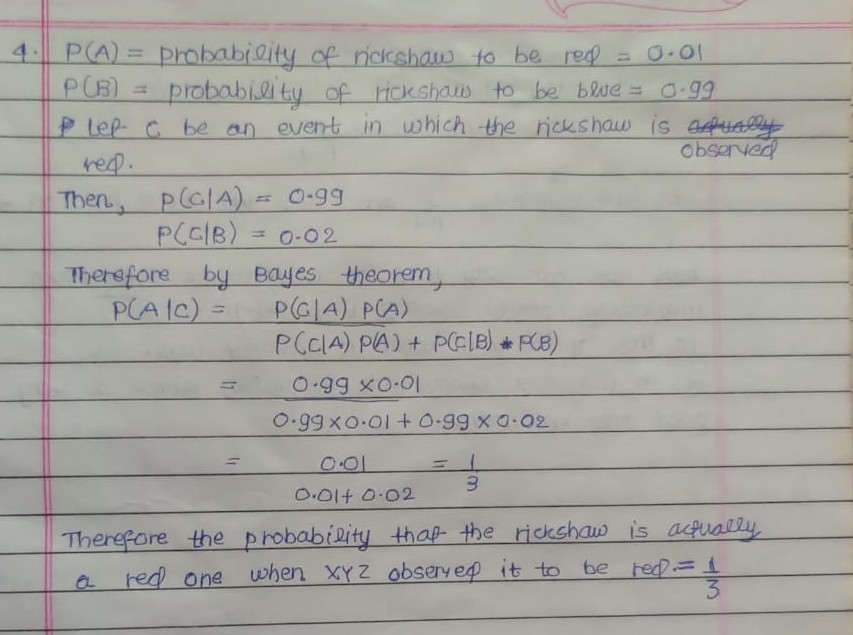 4. P(A) = probability of rickshaw to be red = 0.01
P(B) = probability of rickshaw to be blue = 0.99
Let C be an event in which the rickshaw is actually
observed
red.
Then, P(C|A) = 0.99
P(C|B) = 0.02
Therefore by Bayes theorem,
P(A|C) = P(C|A) P(A)
P(C|A) P(A) + P(C|B) * P(B)
= 0.99 × 0.01
0.99 × 0.01 + 0.99 × 0.02
= 0.01 = 1
0.01 + 0.02 3
Therefore the probability that the rickshaw is actually
a red one when XYZ observed it to be red = 1
3